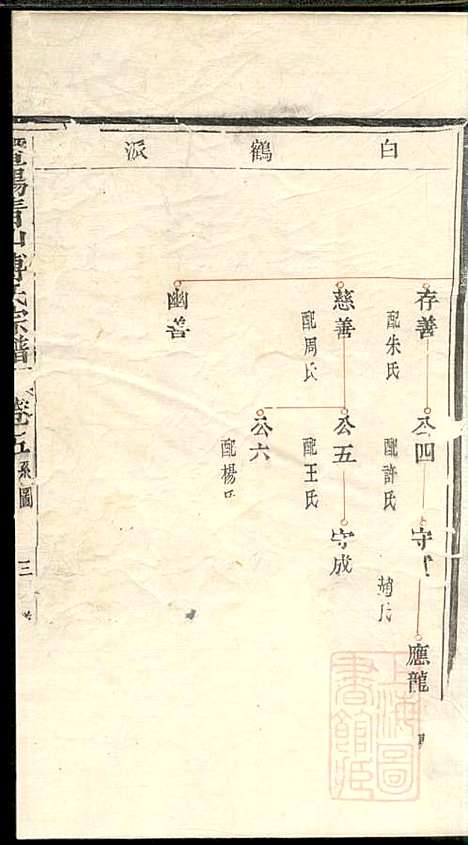 白鶴派
存善
配朱氏
公四
配許氏
守
趙氏
應龍
慈善
配周氏
公五
配王氏
守成
公六
配楊氏
幽善
陽青山傅氏宗譜
卷五
系圖
三
上海圖書館藏